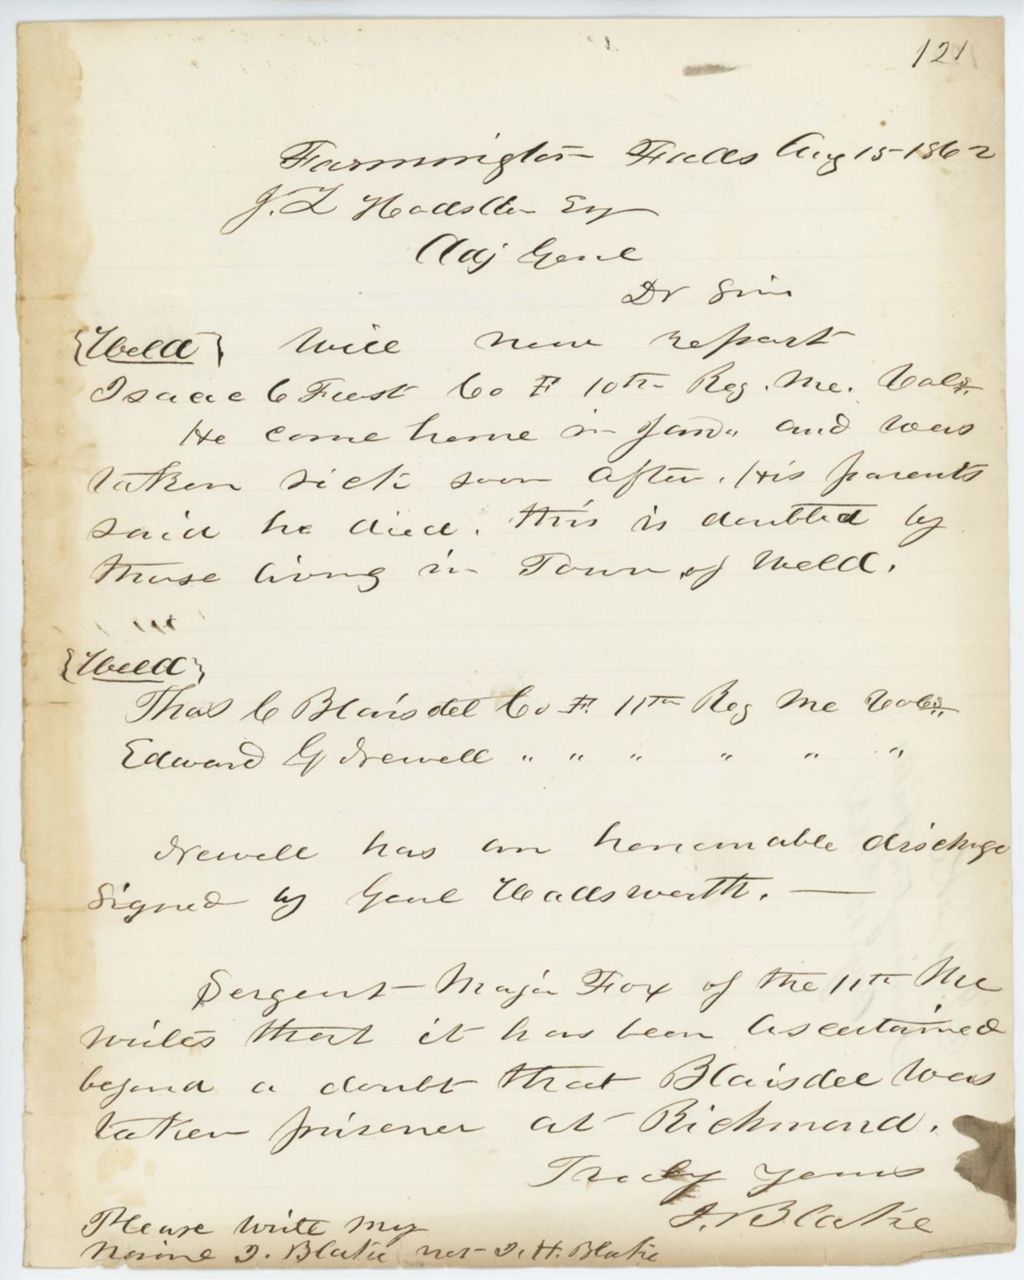 121
Farmington Falls Aug 15 1862
J. L Hodsdon Esq
Adj Genl
Dr Sir
{Weld} Will now report
Isaac C Co F 10th Reg. Me. Vols.
He come home in Jan. and was
taken sick soon after. His parents
said he died. this is doubted by
those living in Town of Weld.
{Weld}
Thos C Blaisdel Co F. 11th Reg Me Vols.
Edward G Newell " " " " " "
Newell has an honorable dischge
Signed by Genl Wadsworth. —
Sergent Major Fox of the 11th Me
writes that it has been ascertained
beyond a doubt that Blaisdel was
taken prisener at Richmond.
Truly yours
J. Blake
Please write my
Name J. Blake not J. H. Blake